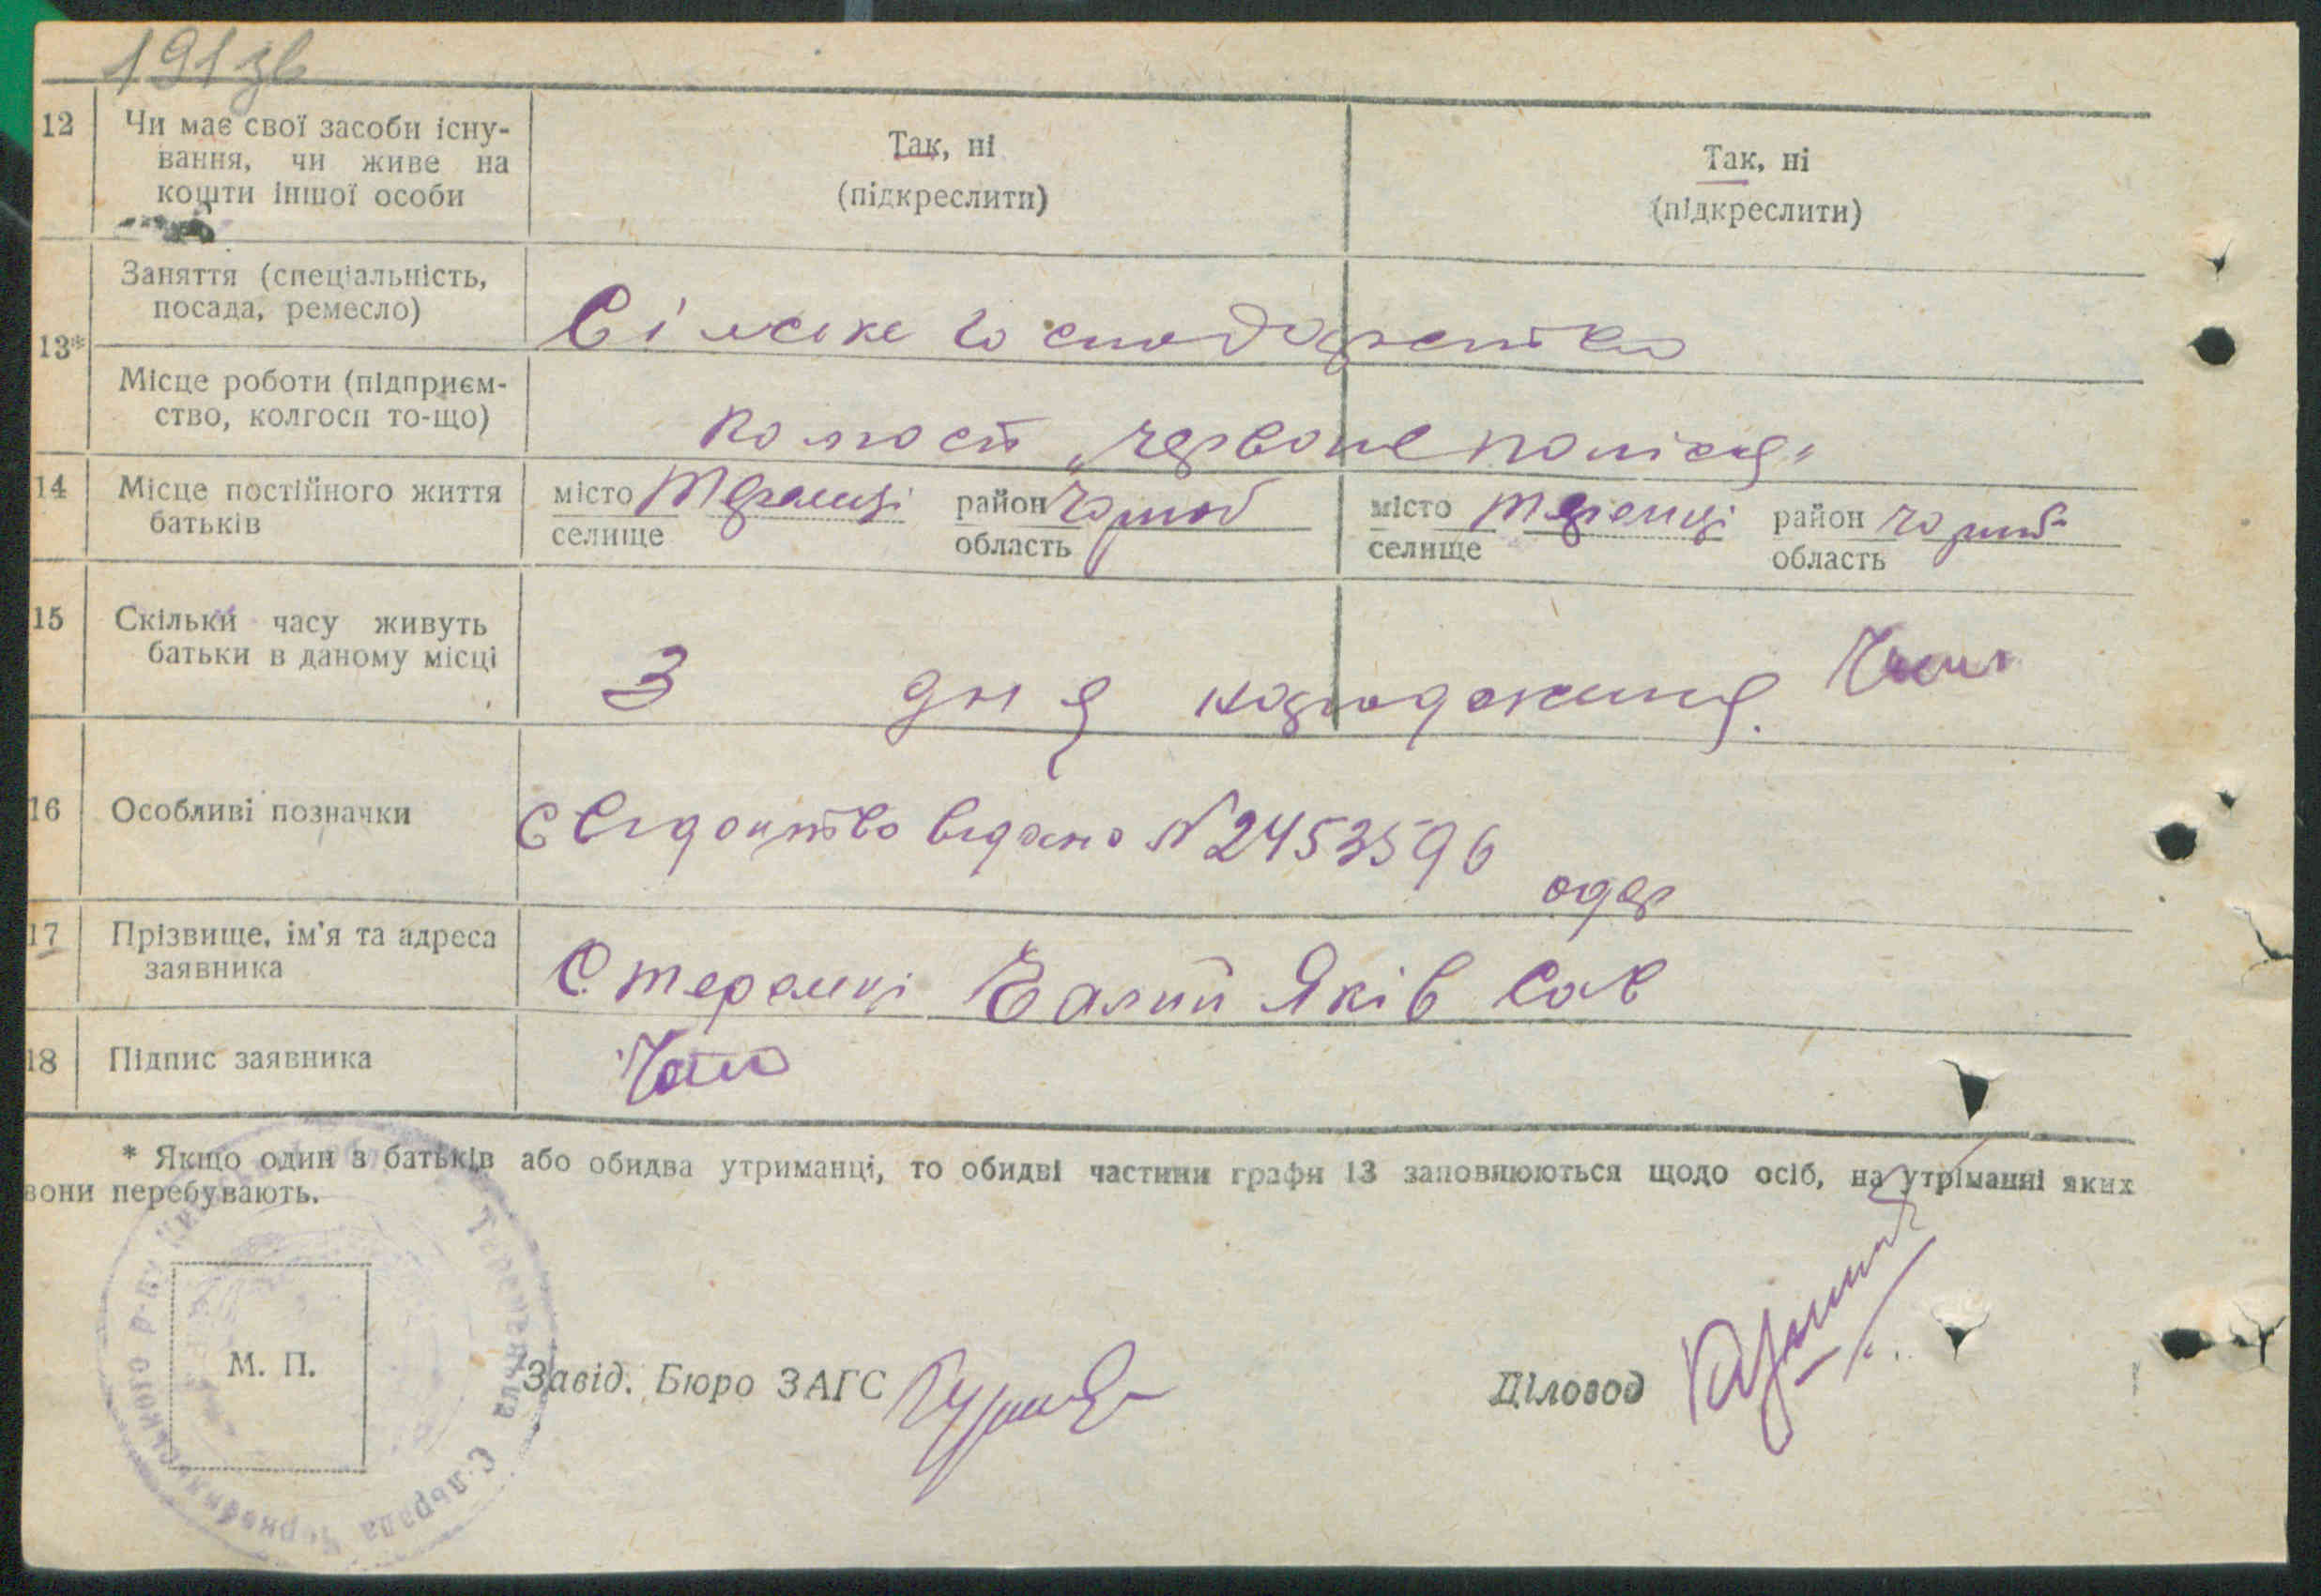 191 зв
12 Чи має свої засоби існу-
вання, чи живе на
кошти іншої особи
Так, ні
(підкреслити)
Так, ні
(підкреслити)
13*
Заняття (спеціальність,
посада, ремесло)
Сільске господарство
Місце роботи (підприєм-
ство, колгосп то-що)
Колгосп „Червоне полісся"
14 Місце постійного життя
батьків
місто Теремці район Чорноб
селище область
місто Теремці район Чорноб
селище область
15 Скільки часу живуть
батьки в даному місці
З дня народження.
16 Особливі позначки
Свидоцтво видано № 2453596
одер
17 Прізвище, ім'я та адреса
заявника
С. Теремці Яків Сав
18 Підпис заявника
* Якщо один з батьків або обидва утриманці, то обидві частини графи 13 заповнюються щодо осіб, на утріманні яких
вони перебувають.
М. П.
Завід. Бюро ЗАГС
Діловод